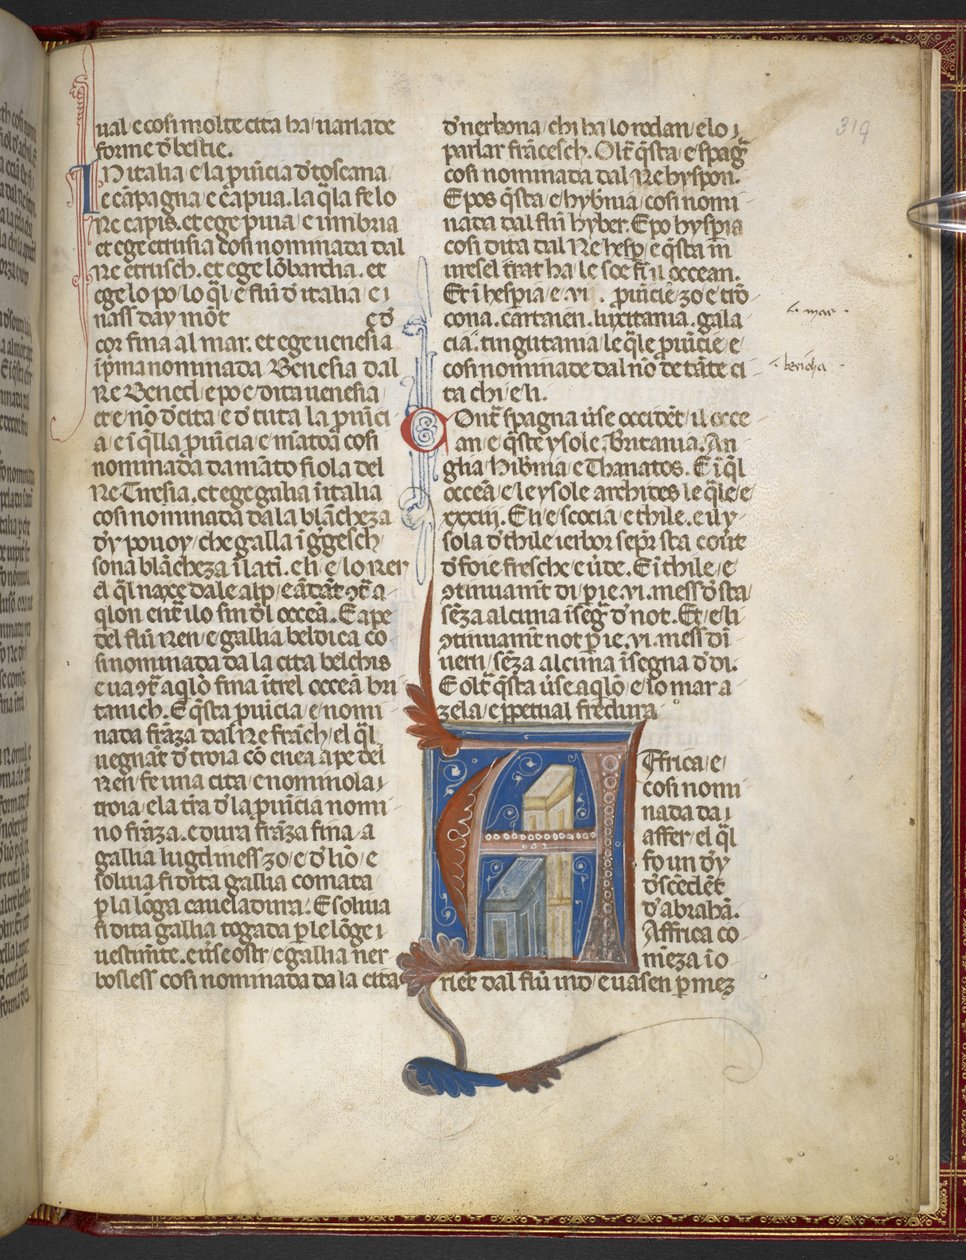 ual · e cosi molte cita ha · uaria de
forme d' bestie.
IN italia · e la puĩcia d' toscana
e cãpagna · e cãpua . la q̃la fe lo
Re capis . et ege puia · e umbria
et ege etrusia cosi nominada dal
Re etrusch . et ege lõbardia . et
ege lo po · lo q̃l · e fluĩ d' italia · e i
nass' day mõt e d'
cor fina al mar . et ege uenesia
ip̃ma nominada Venesia dal
Re Vened · e po · e dita uenesia
et · e · nõ d' cita · e d' tuta la puĩci
a · e ĩ q̃lla puĩcia · e mãtoa cosi
nominada da mãto fiola del
Re Tiresia . et ege galia ĩ italia
cosi nominada da la blãcheza
d' y pouoy · che galla ĩ g̃gesch
sona blãcheza ĩ latĩ . eli · e · lo Ren
el q̃l nasce da le alp ·
q̃lon ent' ilo fin d'l occeã . E a pe
del fluĩ Ren · e gallia beldica co
si nominada da la cita belchis
e ua aq̃lõ fina ĩtrel occeã bri
tanich . E q̃sta puĩcia · e nomi
nada frãza dal Re frãch · el q̃l
uegnãt d' troia cõ enea a pe del
Ren · fe una cita · e nominola ·
troia · e la t'ra d' la puĩcia nomi
no frãza . e dura frãza fina · a
gallia lugd mess' · zo · e d' liõ · e
soluia fi dita gallia comata
p la lõga caueladura . E soluia
fi dita gallia togada p le lõge i
uestimte . e uise ostr · e gallia ner
bosless cosi nominada da la cita
d' nerbona · chi ha lo rodan · e lo
parlar frãcesch . Olt q̃sta · e spag̃
cosi nominada dal Re hyspon .
E pos q̃sta · e hyb'nia · cosi nomi
nada dal fluĩ hyber . E po hyspia
cosi dita dal Re hesp · e q̃sta ĩ
uesel trat ha le soe fĩ il occean .
Et ĩ hespia · e · vi . puĩcie · zo · e trõ
cona . cartaien . luxitania . gala
cia . tingitania · le q̃le puĩcie · e
cosi nominade dal nõ de tãte ci
ta chi · e li .
Ont spagna uise occidẽt · il occe
an · e q̃ste ysole Britania . An
glia Hib'nia · e Thanatos . E ĩ q̃l
occeã · e le ysole archites le q̃le · e
xxxiii . Eli · e scocia · e thile . e il y
sola d' thile
d' foie fresche · e ũde . E ĩ thile · e
ɔtinuamt di p ie . vi . mess' d' sta
sẽza alcuna ĩseg̃ d' not . Et · eli
ɔtinuamt not p ie . vi . mess' d' ĩ
uern · sẽza alcuna ĩsegna d' di .
E olt q̃sta uise aq̃lõ · e · lo mar a
zela · e ppetual fredura
Affrica · e ·
cosi nomi
nada da i
affer · el q̃l
fo un d' y
d'scedẽt
d' abrahã .
Affrica co
mẽza ĩ o
riẽt dal fluĩ ind · e uasen p mez
319